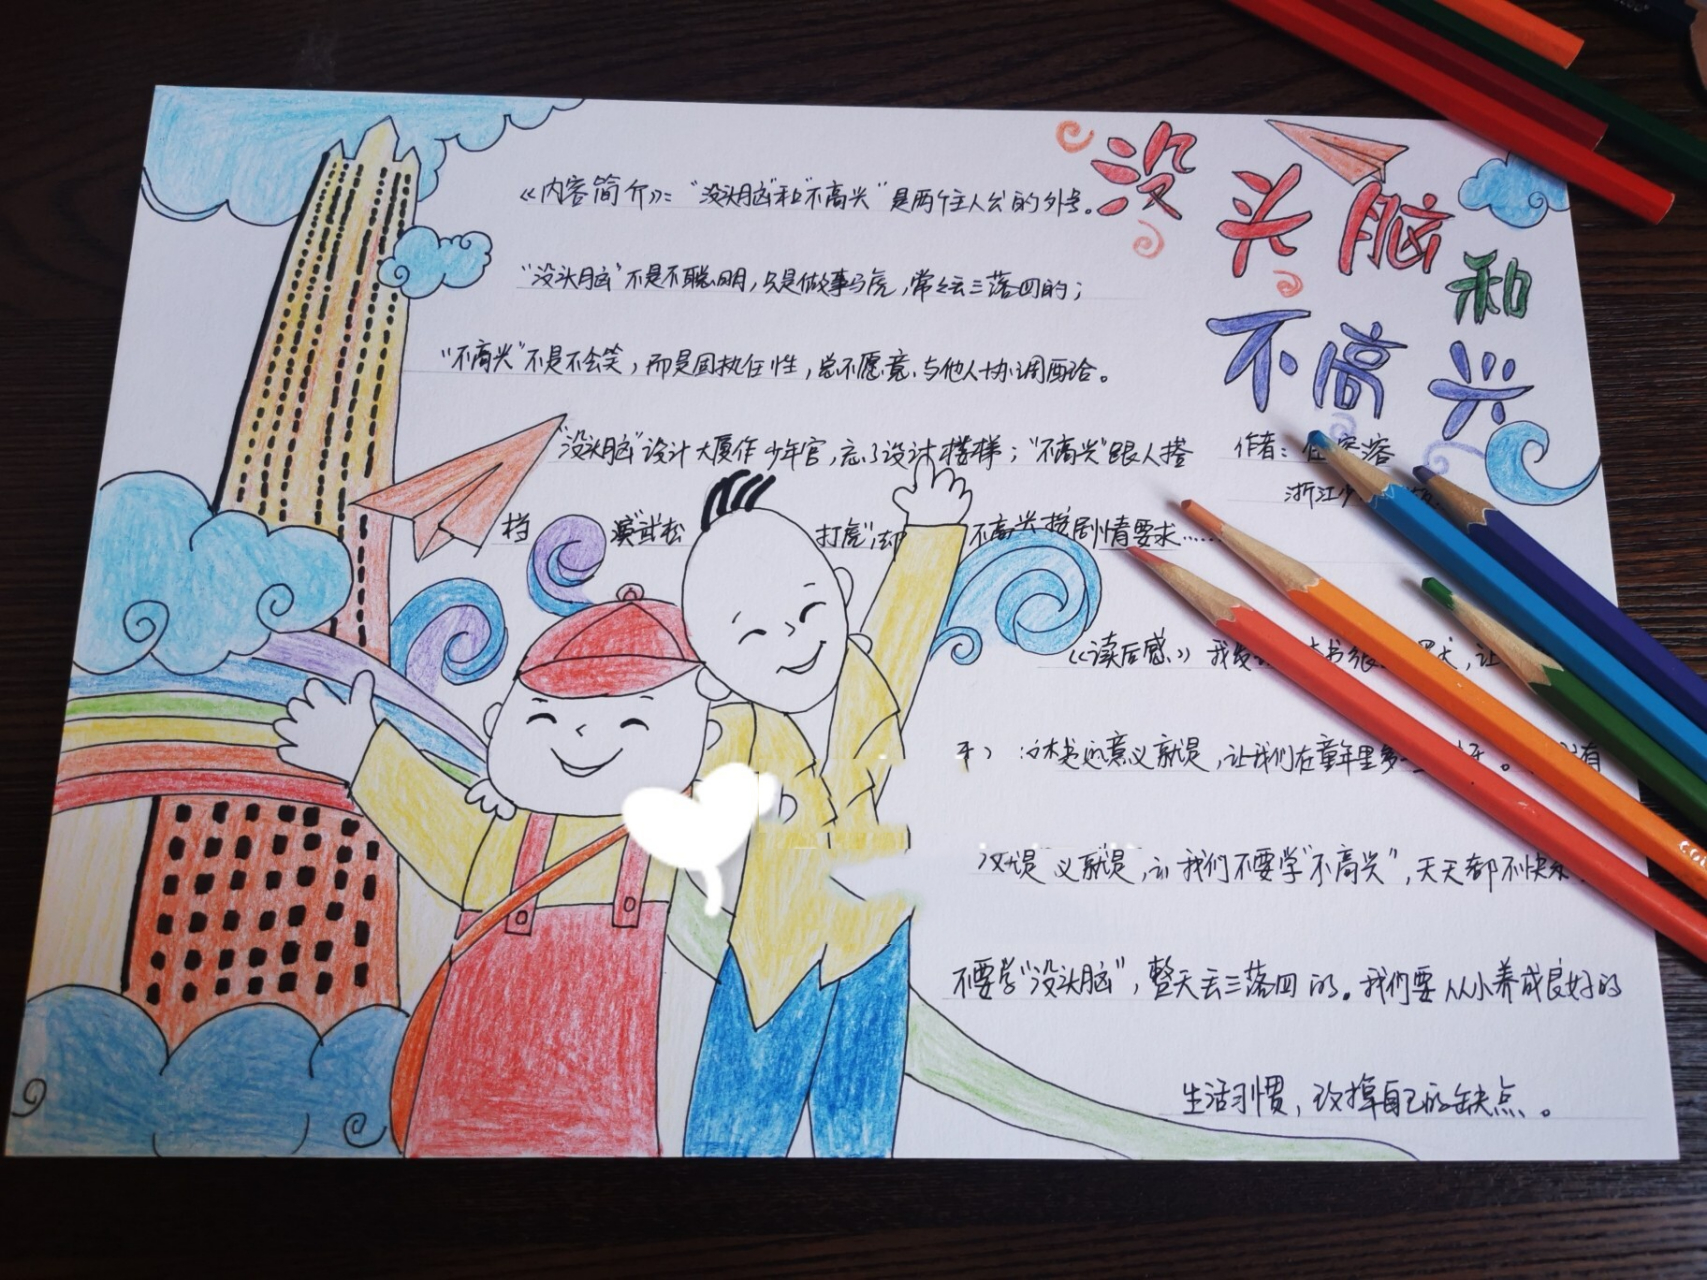 没头脑
和
不高兴
作者：任溶溶
浙江少
《内容简介》：“没头脑”和“不高兴”是两个主人公的外号。
“没头脑”不是不聪明，只是做事马虎，常丢三落四的；
“不高兴”不是不会笑，而是固执任性，总不愿意与他人协调配合。
“没头脑”设计大厦作少年宫，忘了设计楼梯；“不高兴”跟人搭
档 演武松 打虎，却 不高兴按剧情要求……
《读后感》我发 书很 让
这本书的意义就是，让我们在童年里多 有
义就是，让我们不要学“不高兴”，天天都不快乐
不要学“没头脑”，整天丢三落四的。我们要从小养成良好的
生活习惯，改掉自己的缺点。